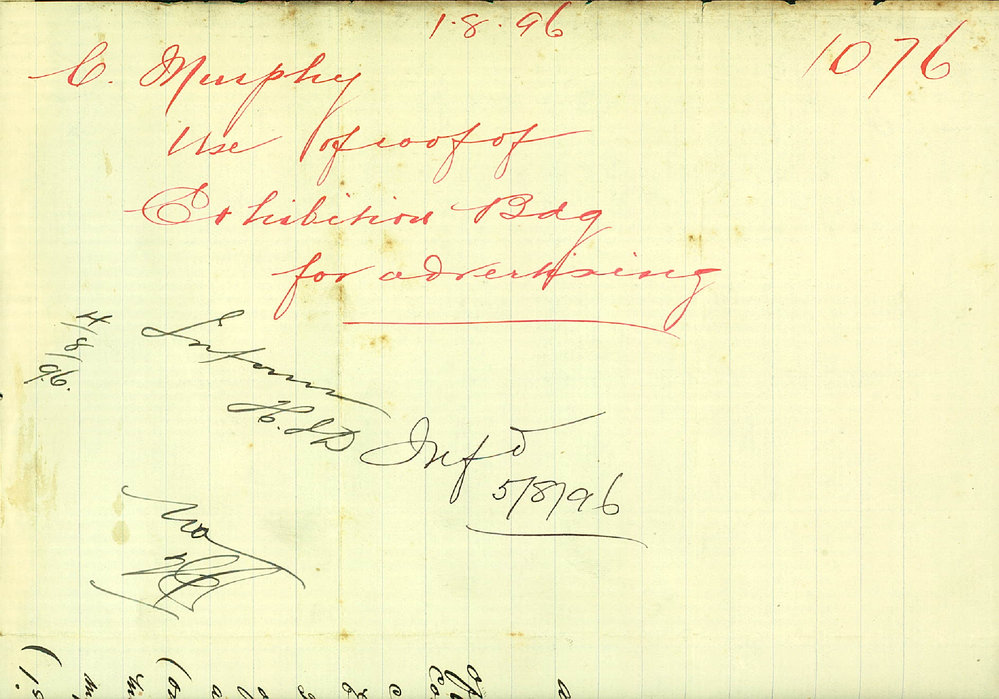 1.8.96
1076
C. Murphy
Use of roof of
Exhibition Bdg
for advertising
4/8/96.
Inform
Inf d
5/8/96
No